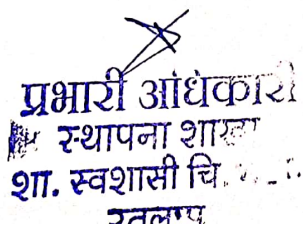 प्रभारी अधिकारी
स्थापना शाखा
शा. स्वशासी चि.
रतलाम